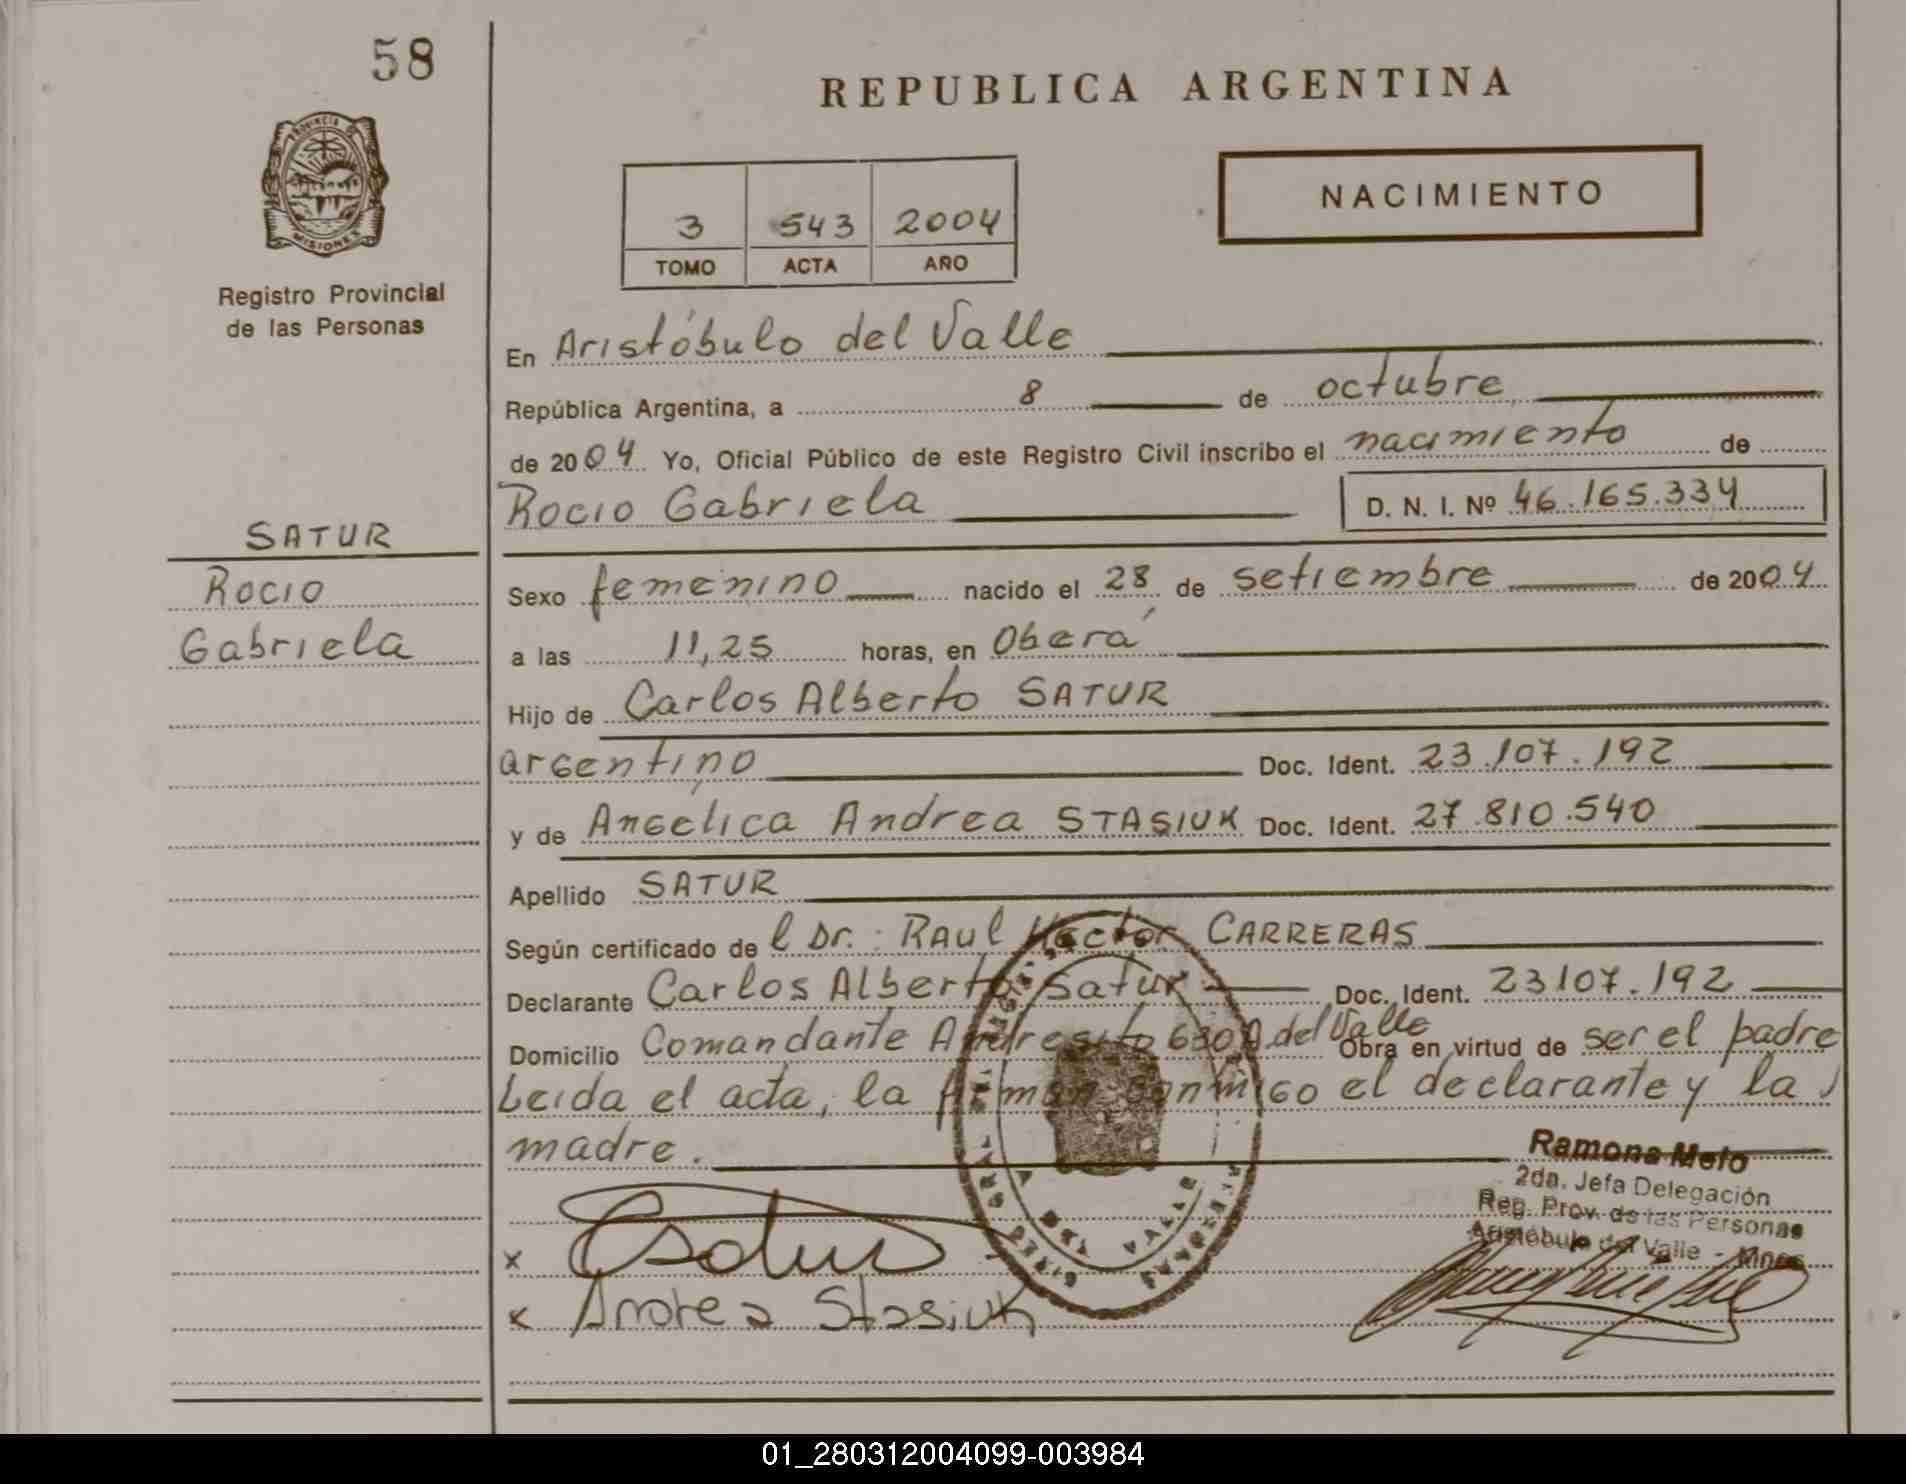 58
REPUBLICA ARGENTINA
PROVINCIA DE
MISIONES
Registro Provincial
de las Personas
3 543 2004
TOMO ACTA AÑO
NACIMIENTO
En Aristóbulo del Valle
República Argentina, a 8 de octubre
de 2004 Yo, Oficial Público de este Registro Civil inscribo el nacimiento de
Rocio Gabriela D. N. I. Nº 46.165.334
SATUR
Rocio
Gabriela
Sexo femenino nacido el 28 de setiembre de 2004
a las 11,25 horas, en Oberá
Hijo de Carlos Alberto SATUR
argentino Doc. Ident. 23.107.192
y de Angelica Andrea STASIUK Doc. Ident. 27.810.540
Apellido SATUR
Según certificado de l Dr.: Raul Hector CARRERAS
Declarante Carlos Alberto Satur Doc. Ident. 23107.192
Domicilio Comandante Andresito 630 A. del Valle Obra en virtud de ser el padre
Leida el acta, la firman conmigo el declarante y la
madre.
Ramona Melo
2da. Jefa Delegación
Reg. Prov. de las Personas
Aristóbulo del Valle - Mnes
x
x Andrea Stasiuk
01_280312004099-003984